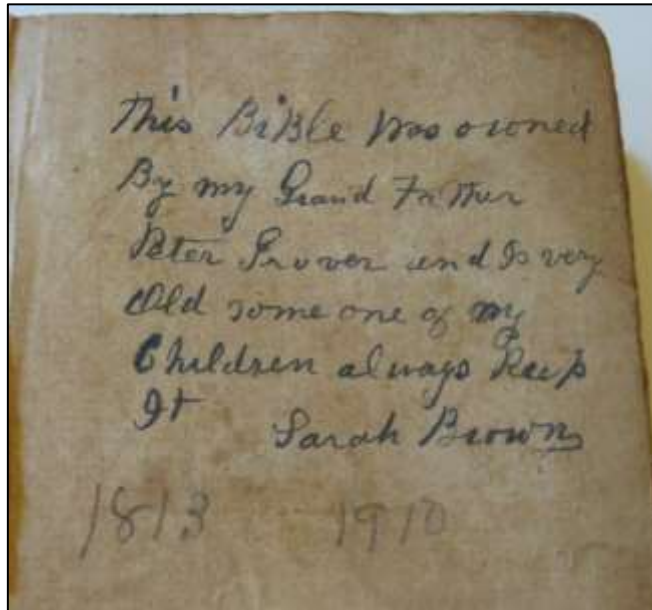 This BiBle was owned
By my Grand Father
Peter Grover and Is very
Old some one of my
Children always Keep
It
Sarah Brown
1813 1910